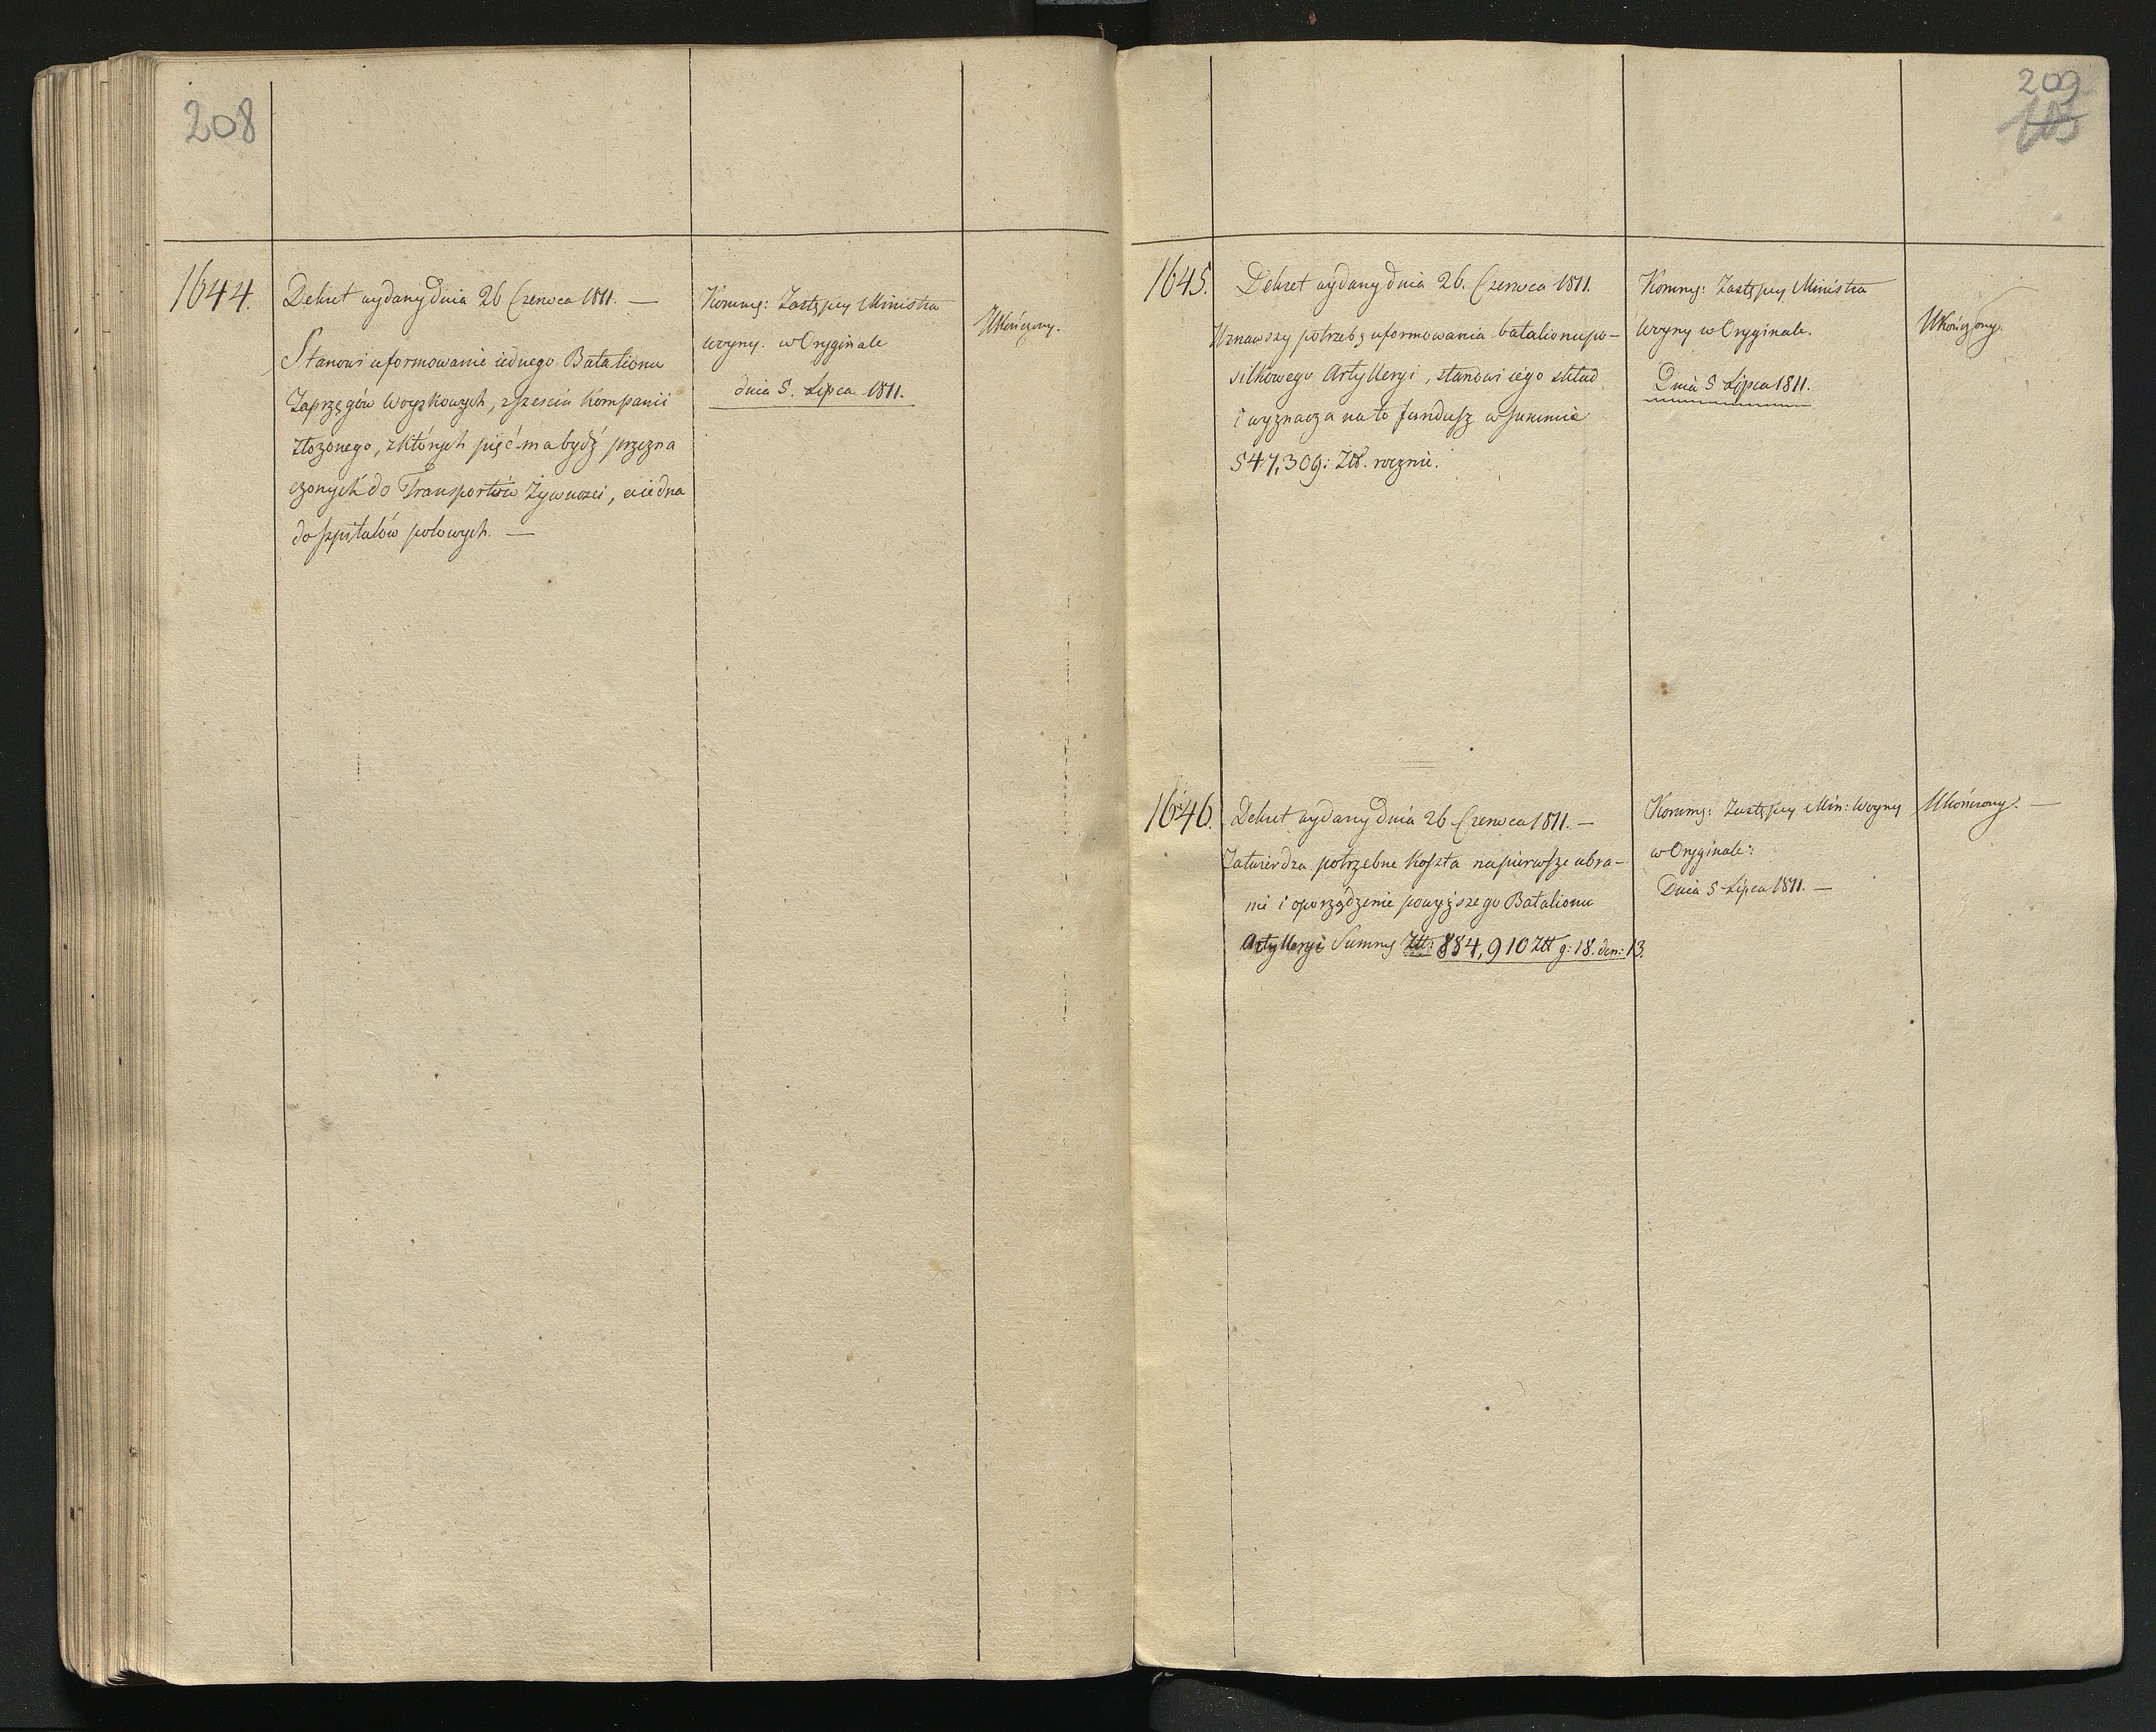 208
1644.
Dekret wydany dnia 26 Czerwca 1811. —
Stanowi uformowanie iednego Batalionu
Zaprzęgów Woyskowych, z sześciu Kompanii
złożonego, z których pięć ma bydź przezna
czonych do Transportów Żywności, a iedna
do szpitalów polowych. —
Kommu: Zastępcy Ministra
Woyny. w Oryginale
dnia 5. Lipca 1811.
Ukończony.
209
105
1645.
Dekret wydany dnia 26. Czerwca 1811.
Uznawszy potrzebę uformowania batalionu po-
siłkowego Artylleryi, stanowi iego skład
i wyznacza na to fundusz w summie
547,309: Złł. rocznie.
Kommu: Zastępcy Ministra
Woyny w Oryginale.
Dnia 5 Lipca 1811.
Ukończony.
1646.
Dekret wydany dnia 26 Czerwca 1811. —
Zatwierdza potrzebne koszta na pierwsze ubra-
nie i oporządzenie powyższego Batalionu
Artylleryi Summę Złł: 884,910 Złł g: 18. den: 13.
Kommu: Zastępcy Min: Woyny
w Oryginale:
Dnia 5 Lipca 1811. —
Ukończony. —